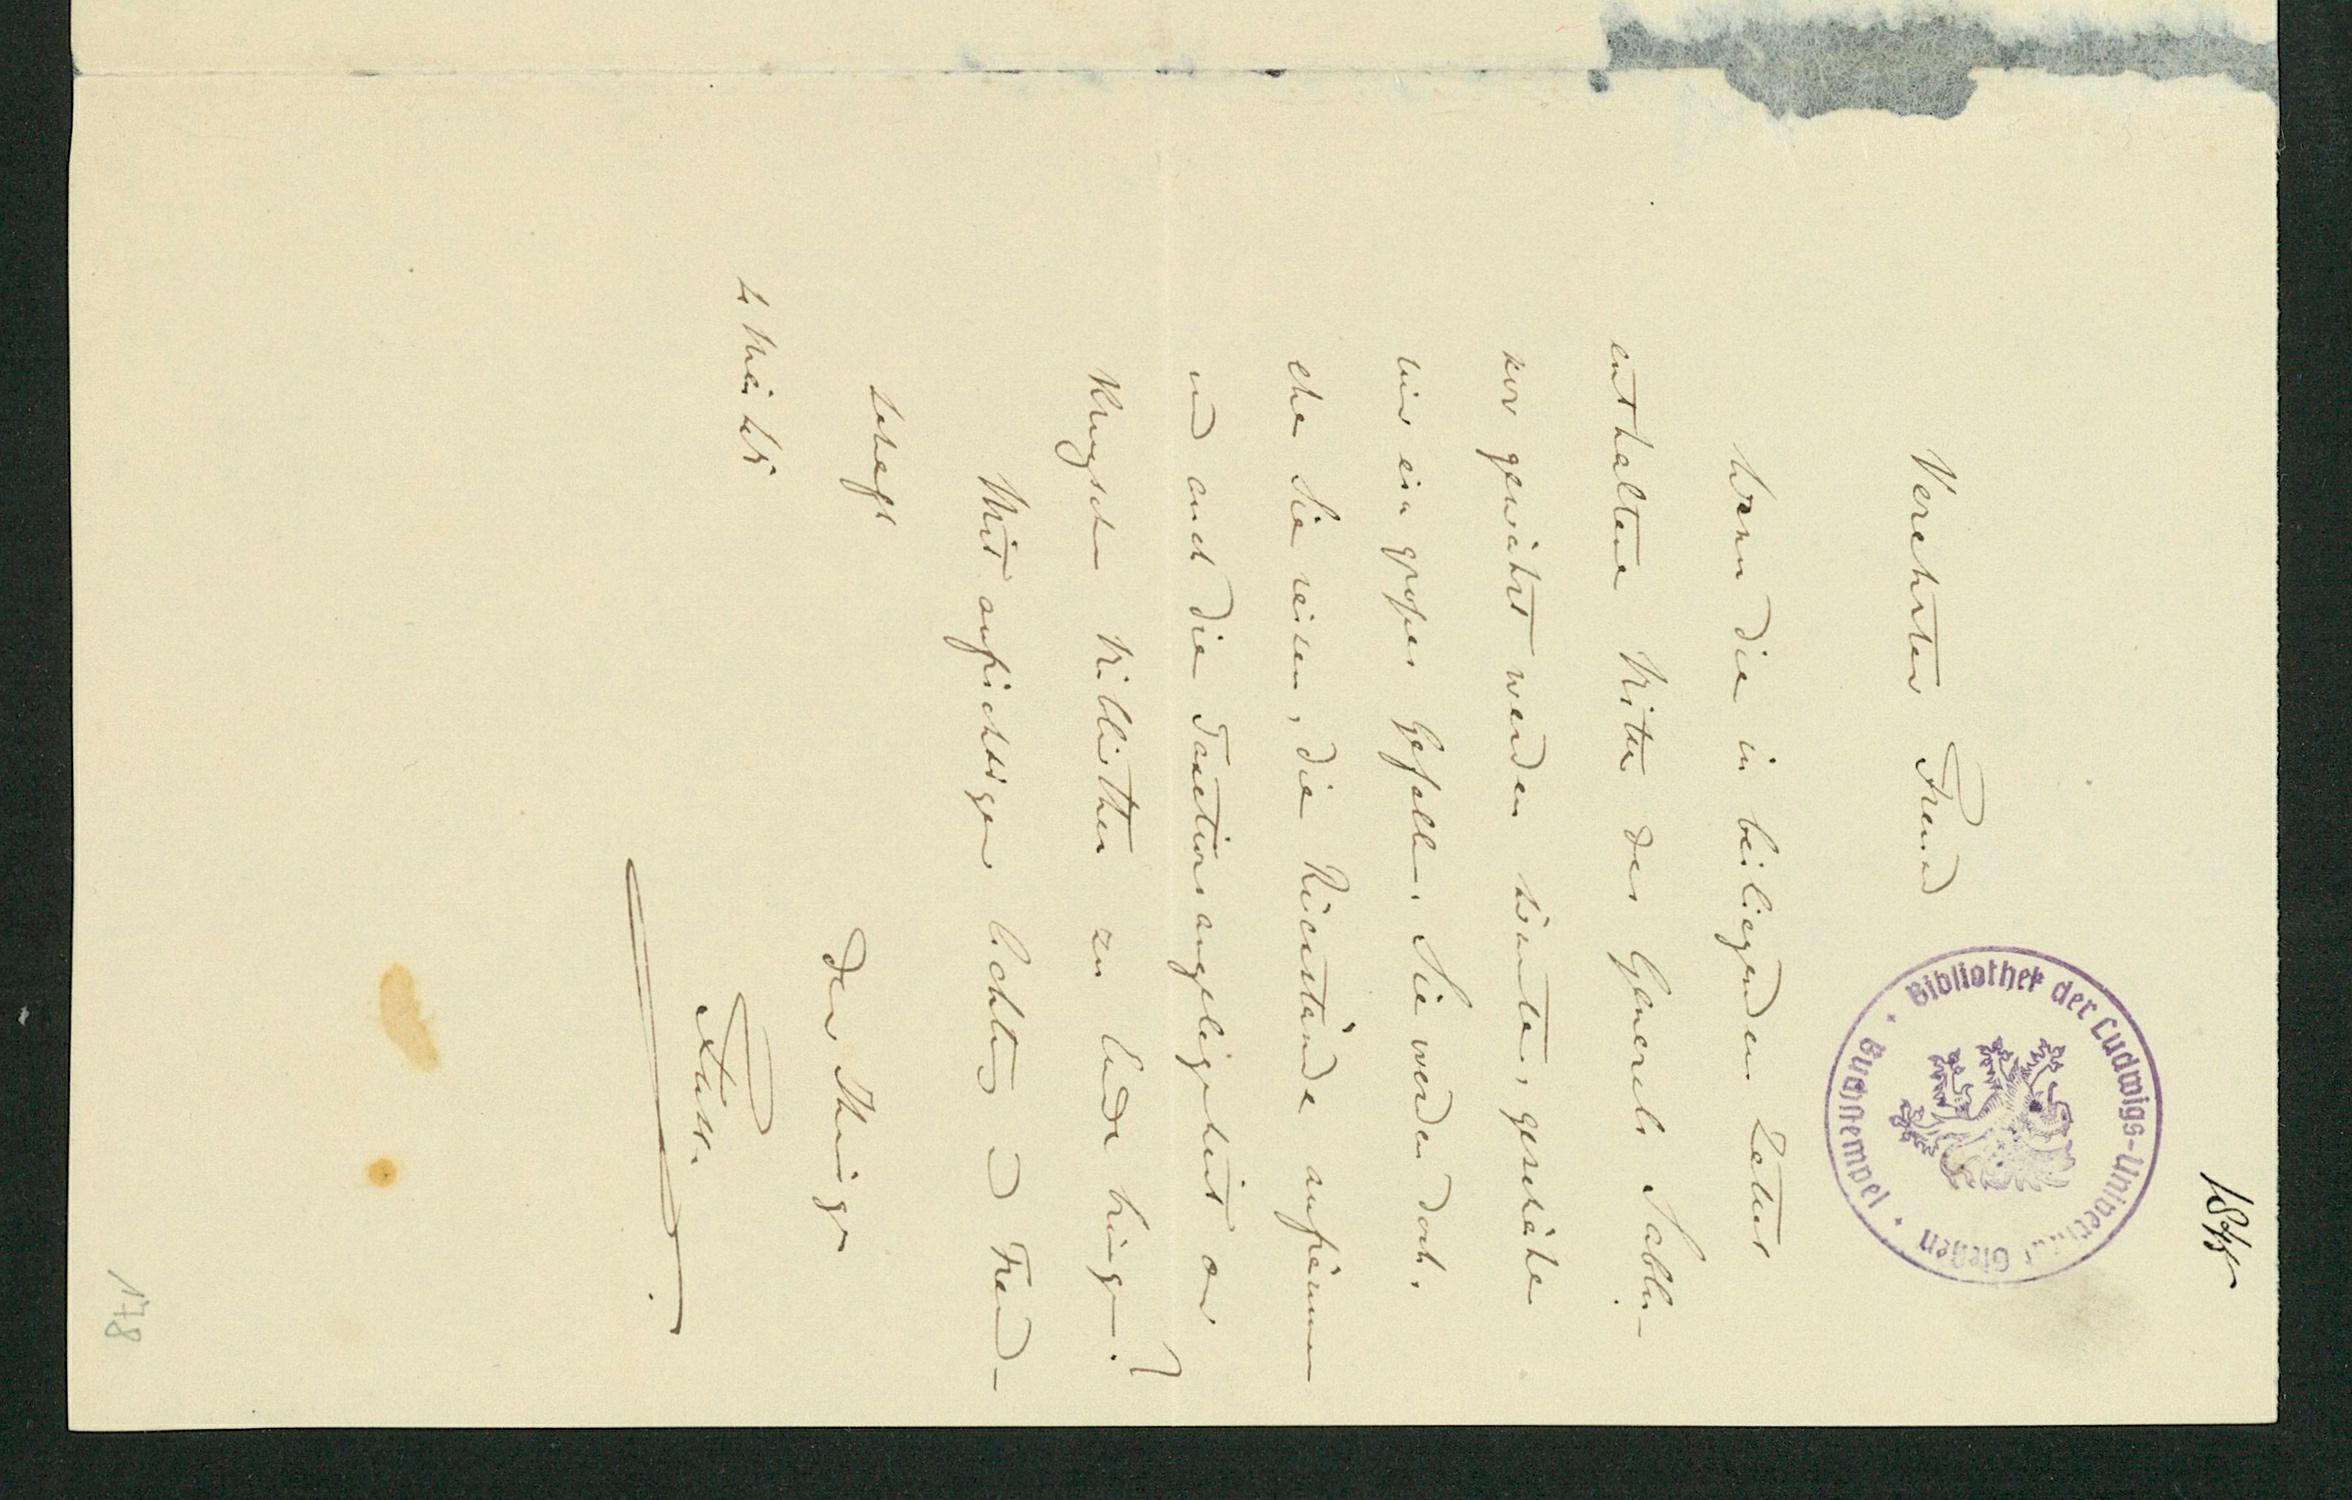 184
Bibliothek der Ludwigs-Universität Gießen · Buchstempel ·
Verehrter Freund
Wenn die in beiliegenden Zettel
enthaltene Bitte des Generals Sabli-
kov gewährt werden könnte, geschähe
mir ein großer Gefallen. Sie werden doch,
ehe Sie reisen, die Rückstände aufräumen
und auch die Taxationsangelegenheit der
Krugschen Bibliothek zu Ende bringen?
Mit aufrichtiger Achtung u Freund-
schaft
der Ihrige
d
178